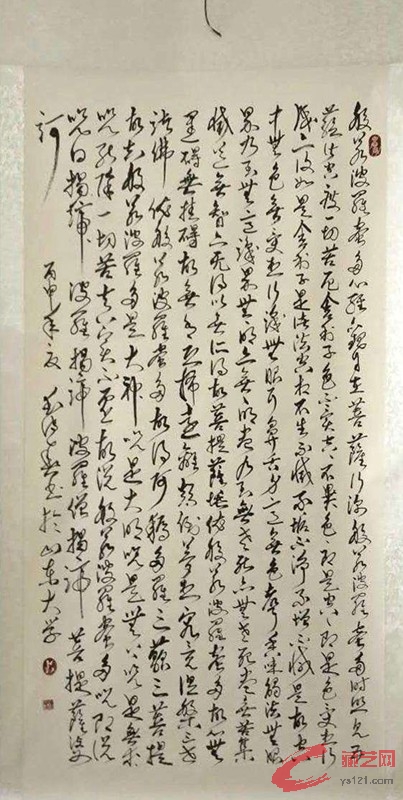 般若波羅蜜多心經觀自在菩薩行深般若波羅蜜多時照見五
蘊皆空度一切苦厄舍利子色不異空空不異色色即是空空即是色受想行
識亦復如是舍利子是諸法空相不生不滅不垢不淨不增不減是故空
中無色無受想行識無眼耳鼻舌身意無色聲香味觸法無眼
界乃至無意識界無無明亦無無明盡乃至無老死亦無老死盡無苦集
滅道無智亦無得以無所得故菩提薩埵依般若波羅蜜多故心無
罣礙無罣礙故無有恐怖遠離顛倒夢想究竟涅槃三世
諸佛依般若波羅蜜多故得阿耨多羅三藐三菩提
故知般若波羅蜜多是大神咒是大明咒是無上咒是無等
咒能除一切苦真實不虛故說般若波羅蜜多咒即說
咒曰揭諦 波羅揭諦 波羅僧揭諦 菩提薩婆
訶 丙申年夏 書於山東大学
藏艺网
ys121.com